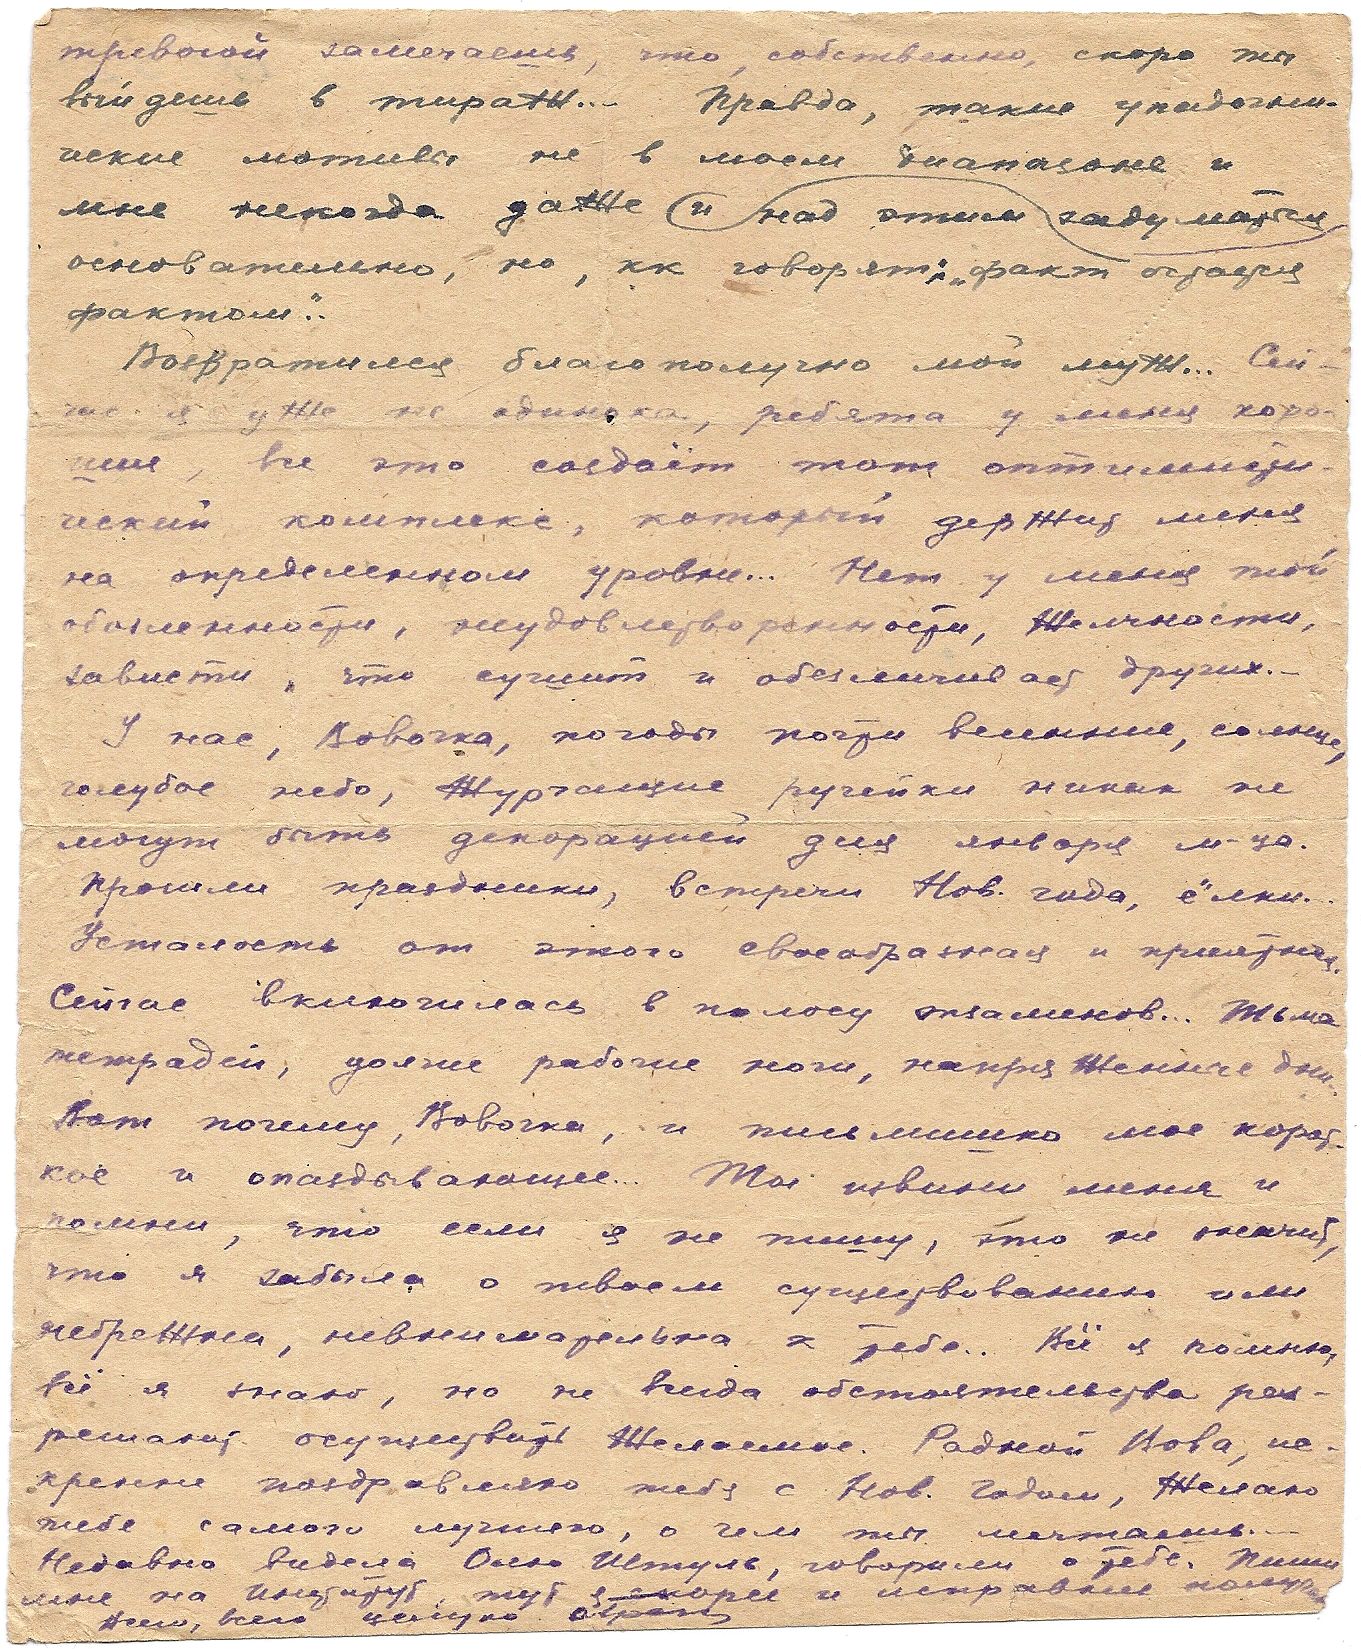 тревогой замечаешь, что, собственно, скоро ты
выйдешь в тираж... Правда, такие упадочни-
ческие мотивы не в моем диапазоне и
мне некогда даже и над этим задуматься
основательно, но, кк говорят: „факт остается
фактом“..
Возвратился благополучно мой муж... Сей-
час я уже не одинока, ребята у меня хоро-
шие, все это создаёт тот оптимисти-
ческий комплекс, который держит меня
на определенном уровне... Нет у меня той
обозленности, неудовлетворенности, желчности,
зависти, что сушит и обезличивает других.-
У нас, Вовочка, погоды почти весенние, солнце,
голубое небо, журчащие ручейки никак не
могут быть декорацией для января м-ца.
Прошли праздники, встречи Нов. года, ёлки...
Усталость от этого своеобразная и приятная.
Сейчас включилась в полосу экзаменов... Тьма
тетрадей, долгие рабочие ночи, напряженные дни..
Вот почему, Вовочка, и письмишко мое корот-
кое и опаздывающее... Ты извини меня и
помни, что если я не пишу, это не значит,
что я забыла о твоем существовании или
небрежна, невнимательна к тебе.. Всё я помню,
всё я знаю, но не всегда обстоятельства раз-
решают осуществить желаемое. Родной Вова, ис-
кренне поздравляю тебя с Нов. Годом, желаю
тебе самого лучшего, о чем ты мечтаешь.-
Недавно видела Олю Штуль, говорили о тебе. Пиши
мне на Институт, тут я скорее и исправнее получаю
Всего, всего целую